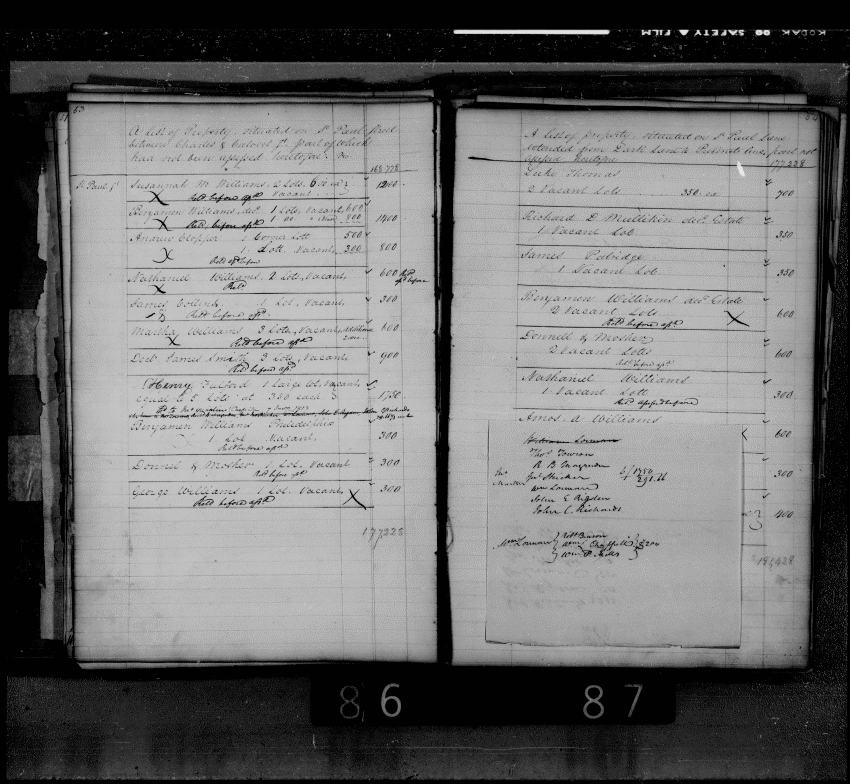 KODAK SAFETY FILM
53
A List of Property, situated on St Paul Street
between Charles & Calvert St. part of which
had not been assessed heretofore. Viz
168.778
St Paul St Susannah M Williams, 2 Lots, 600 ea 1200
Vacant
Retd before assd
Benjamen Williams, decd 1 Lot, Vacant, 600
1 Do 800 1400
Retd before assd
Andrew Clopper 1 Corner Lott 500
1 Lott, Vacant, 300 800
Retd assd before
Nathaniel Williams, 2 Lots, Vacant, 600 Retd
assd before
Retd
James 1 Lot, Vacant, 300
Retd before assd
Martha Williams 3 Lots, Vacant, 600
Retd before assd
Doct James Smith 3 Lots, Vacant 900
Retd before assd
Henry Fulford 1 large lot, Vacant,
equal to 5 Lots at 350 each 1750
Benjamen Williams Philadelphia
1 Lot Vacant. 300
Retd before assd
Donnell & Mosher 1 Lot, Vacant 300
Retd before assd
George Williams 1 Lot, Vacant 300
Retd before assd
177,228
A list of property, situated on St Paul Lane
extended from Dark Lane to part not
assessed heretofore
177,228
Luke Thomas
2 Vacant Lots 350 ea 700
Richard D Mullikin decd Estate
1 Vacant Lot 350
James Patridge
1 Vacant Lot 350
Benjamen Williams decd Estate
2 Vacant Lots 600
Retd before assd
Donnell & Mosher
2 Vacant Lotts 600
Retd before assd
Nathaniel Williams
1 Vacant Lott 300
Retd assessed before
Amos A Williams
600
Thos Towson
R B Magruder
Jno Stricker 6/1750
291.66
Wm Lorman
John E Rigden
John C Richards
300
400
Wm Lorman
Wm P Mills
5200
181,428
86 87